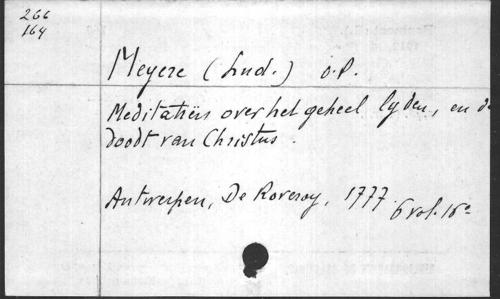 266
164
Meyere (Lud.) o.p.
Meditatiën over het geheel lyden, en de
doodt van Christus.
Antwerpen, De Roveroy, 1777. 6 vol. 16°